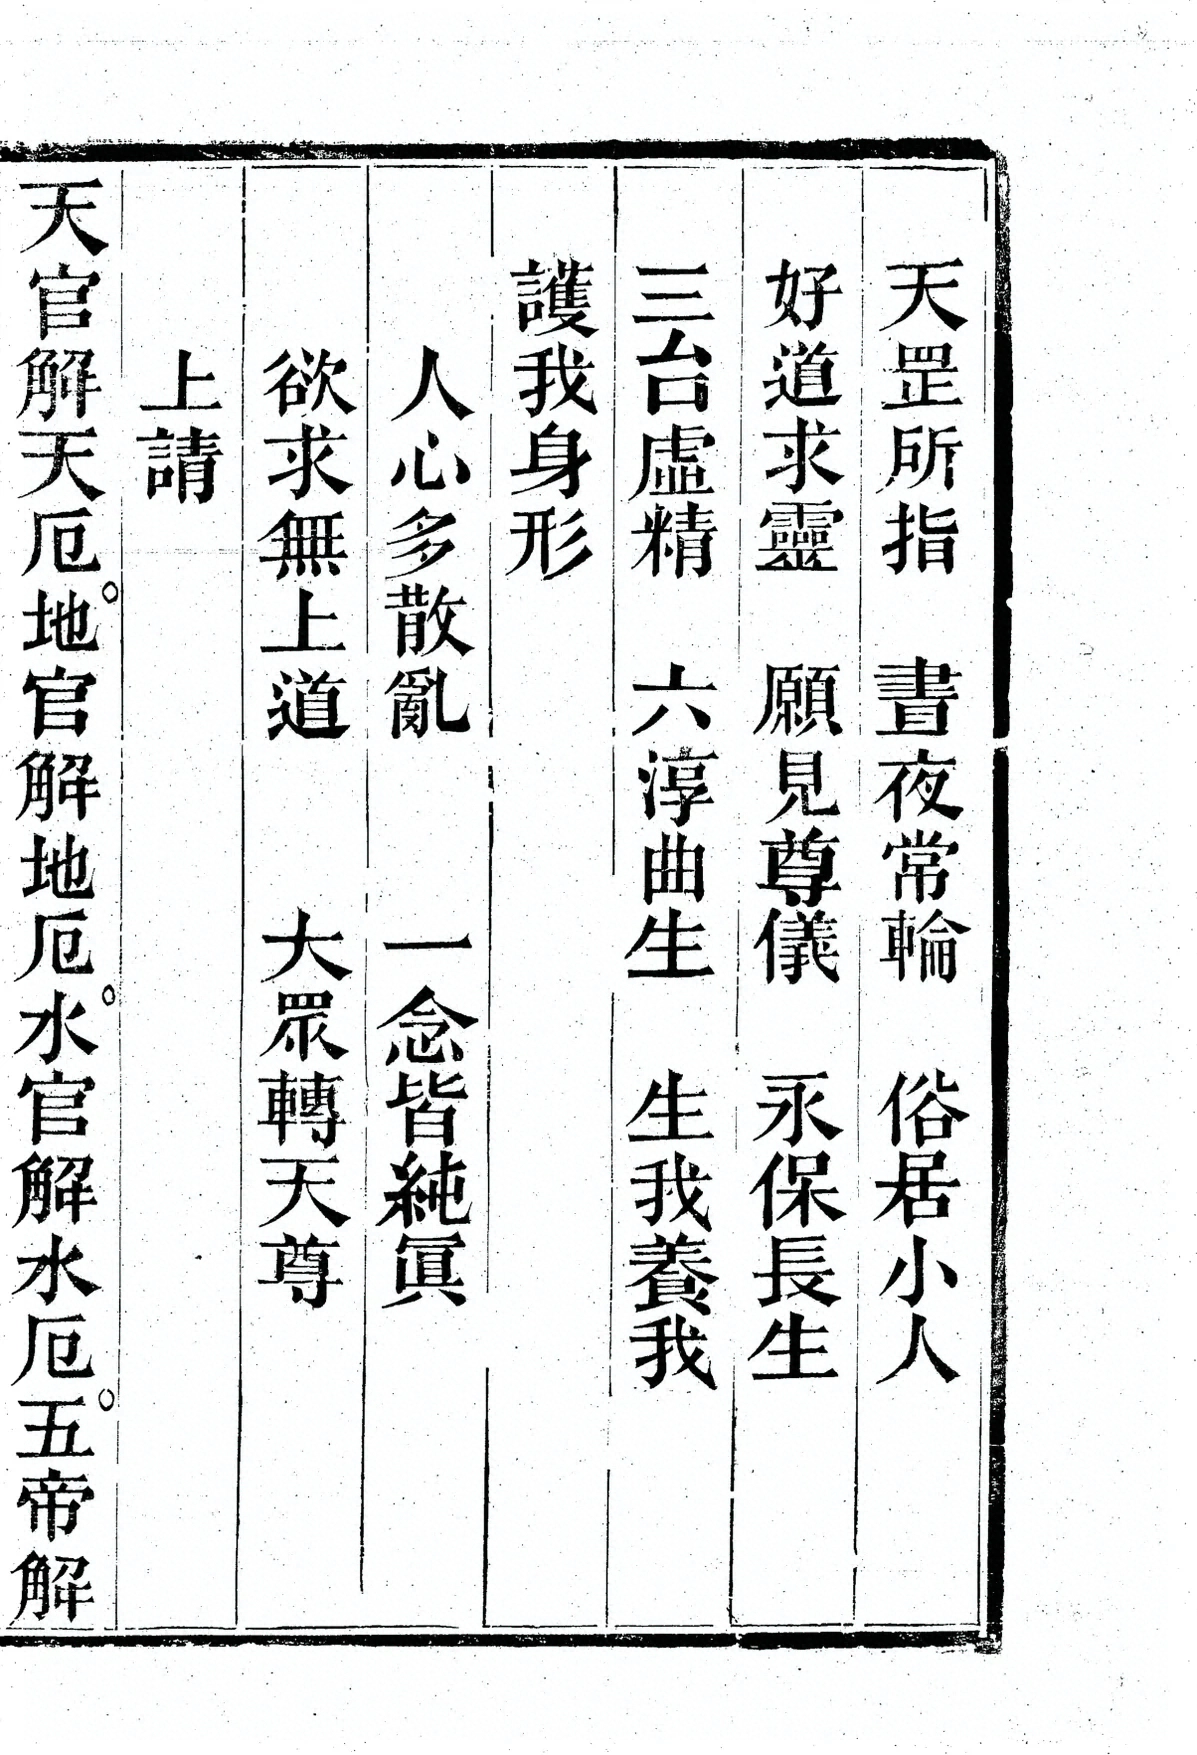 天罡所指　晝夜常輪　俗居小人
好道求靈　願見尊儀　永保長生
三台虛精　六淳曲生　生我養我
護我身形
人心多散亂　一念皆純眞
欲求無上道　大眾轉天尊
上請
天官解天厄。地官解地厄。水官解水厄。五帝解